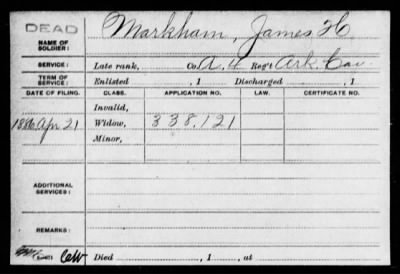 DEAD
Markham, James H.
NAME OF SOLDIER:
SERVICE: Late rank, Co. A, 4 Reg't Ark. Cav.
TERM OF SERVICE: Enlisted , 1 Discharged , 1
DATE OF FILING. CLASS. APPLICATION NO. LAW. CERTIFICATE NO.
Invalid,
1886 Apr 21 Widow, 338.121
Minor,
ADDITIONAL SERVICES:
REMARKS:
Died , 1 , at